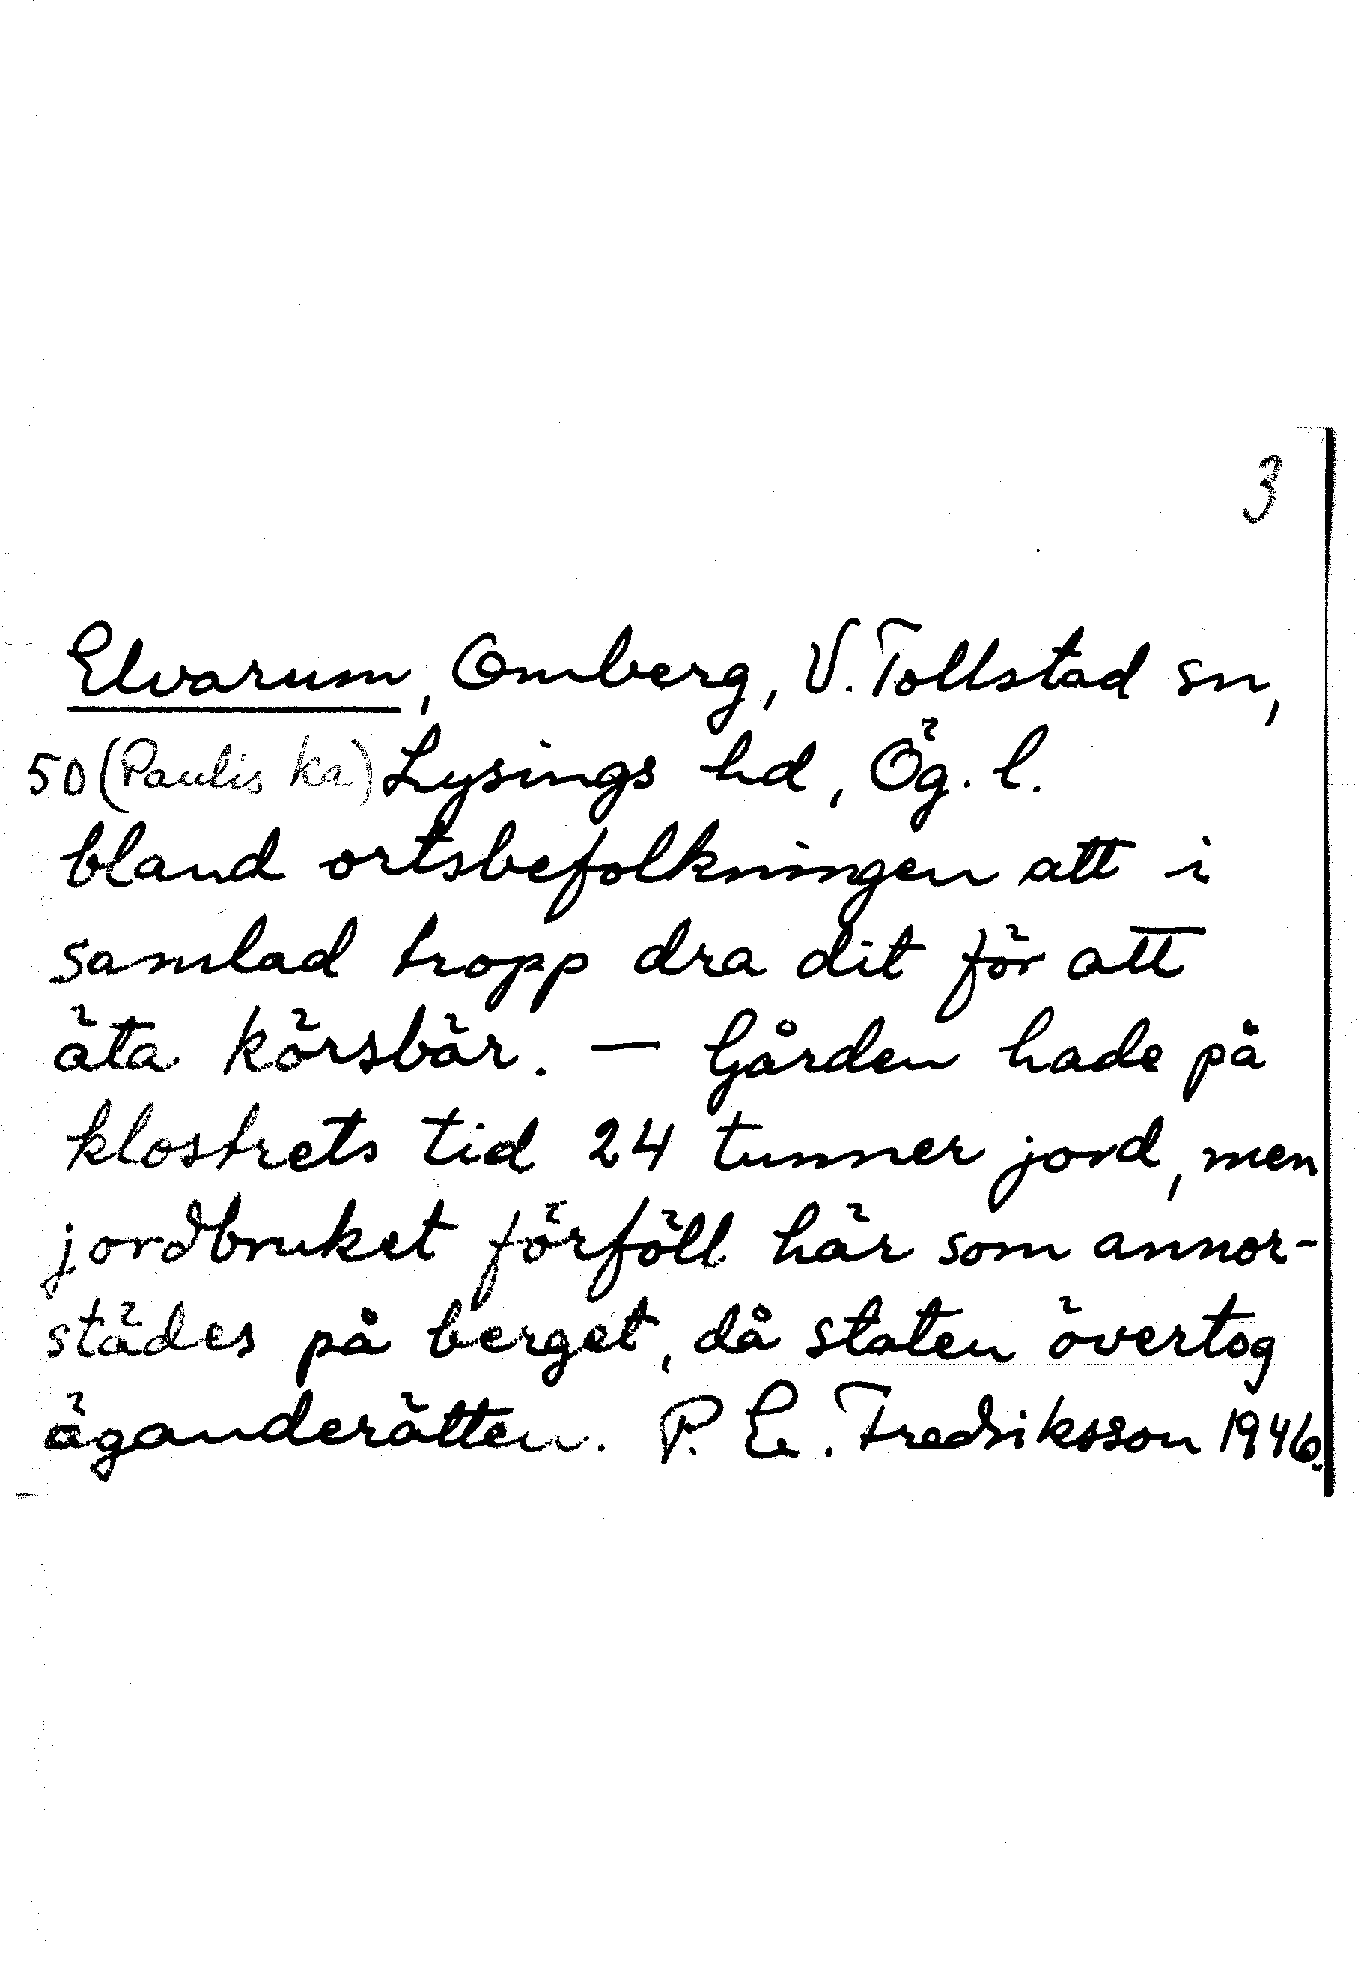 3
Elvarum, Omberg, V. Tollstad sn,
50 (Paulis ka) Lysings hd, Ög. l.
bland ortsbefolkningen att i
samlad tropp dra dit för att
äta körsbär. — Gården hade på
klostrets tid 24 tunner jord, men
jordbruket förföll här som annor-
städes på berget, då staten övertog
äganderätten. P. E. Fredriksson 1946.